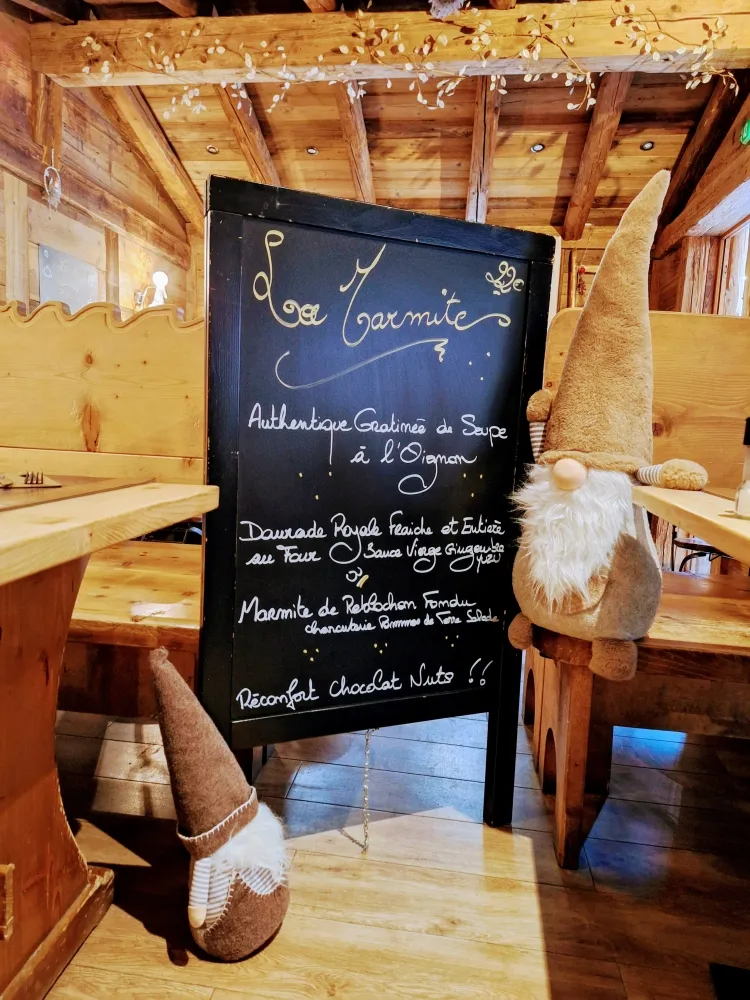 La Marmite
Authentique Gratineé de Soupe
à l'Oignon
Daurade Royale Fraiche et Entière
au Four Sauce Vierge Gingembre
yuzu
Marmite de Reblochon Fondu
charcuterie Pommes de Terre Salade
Réconfort chocolat Nuts !!